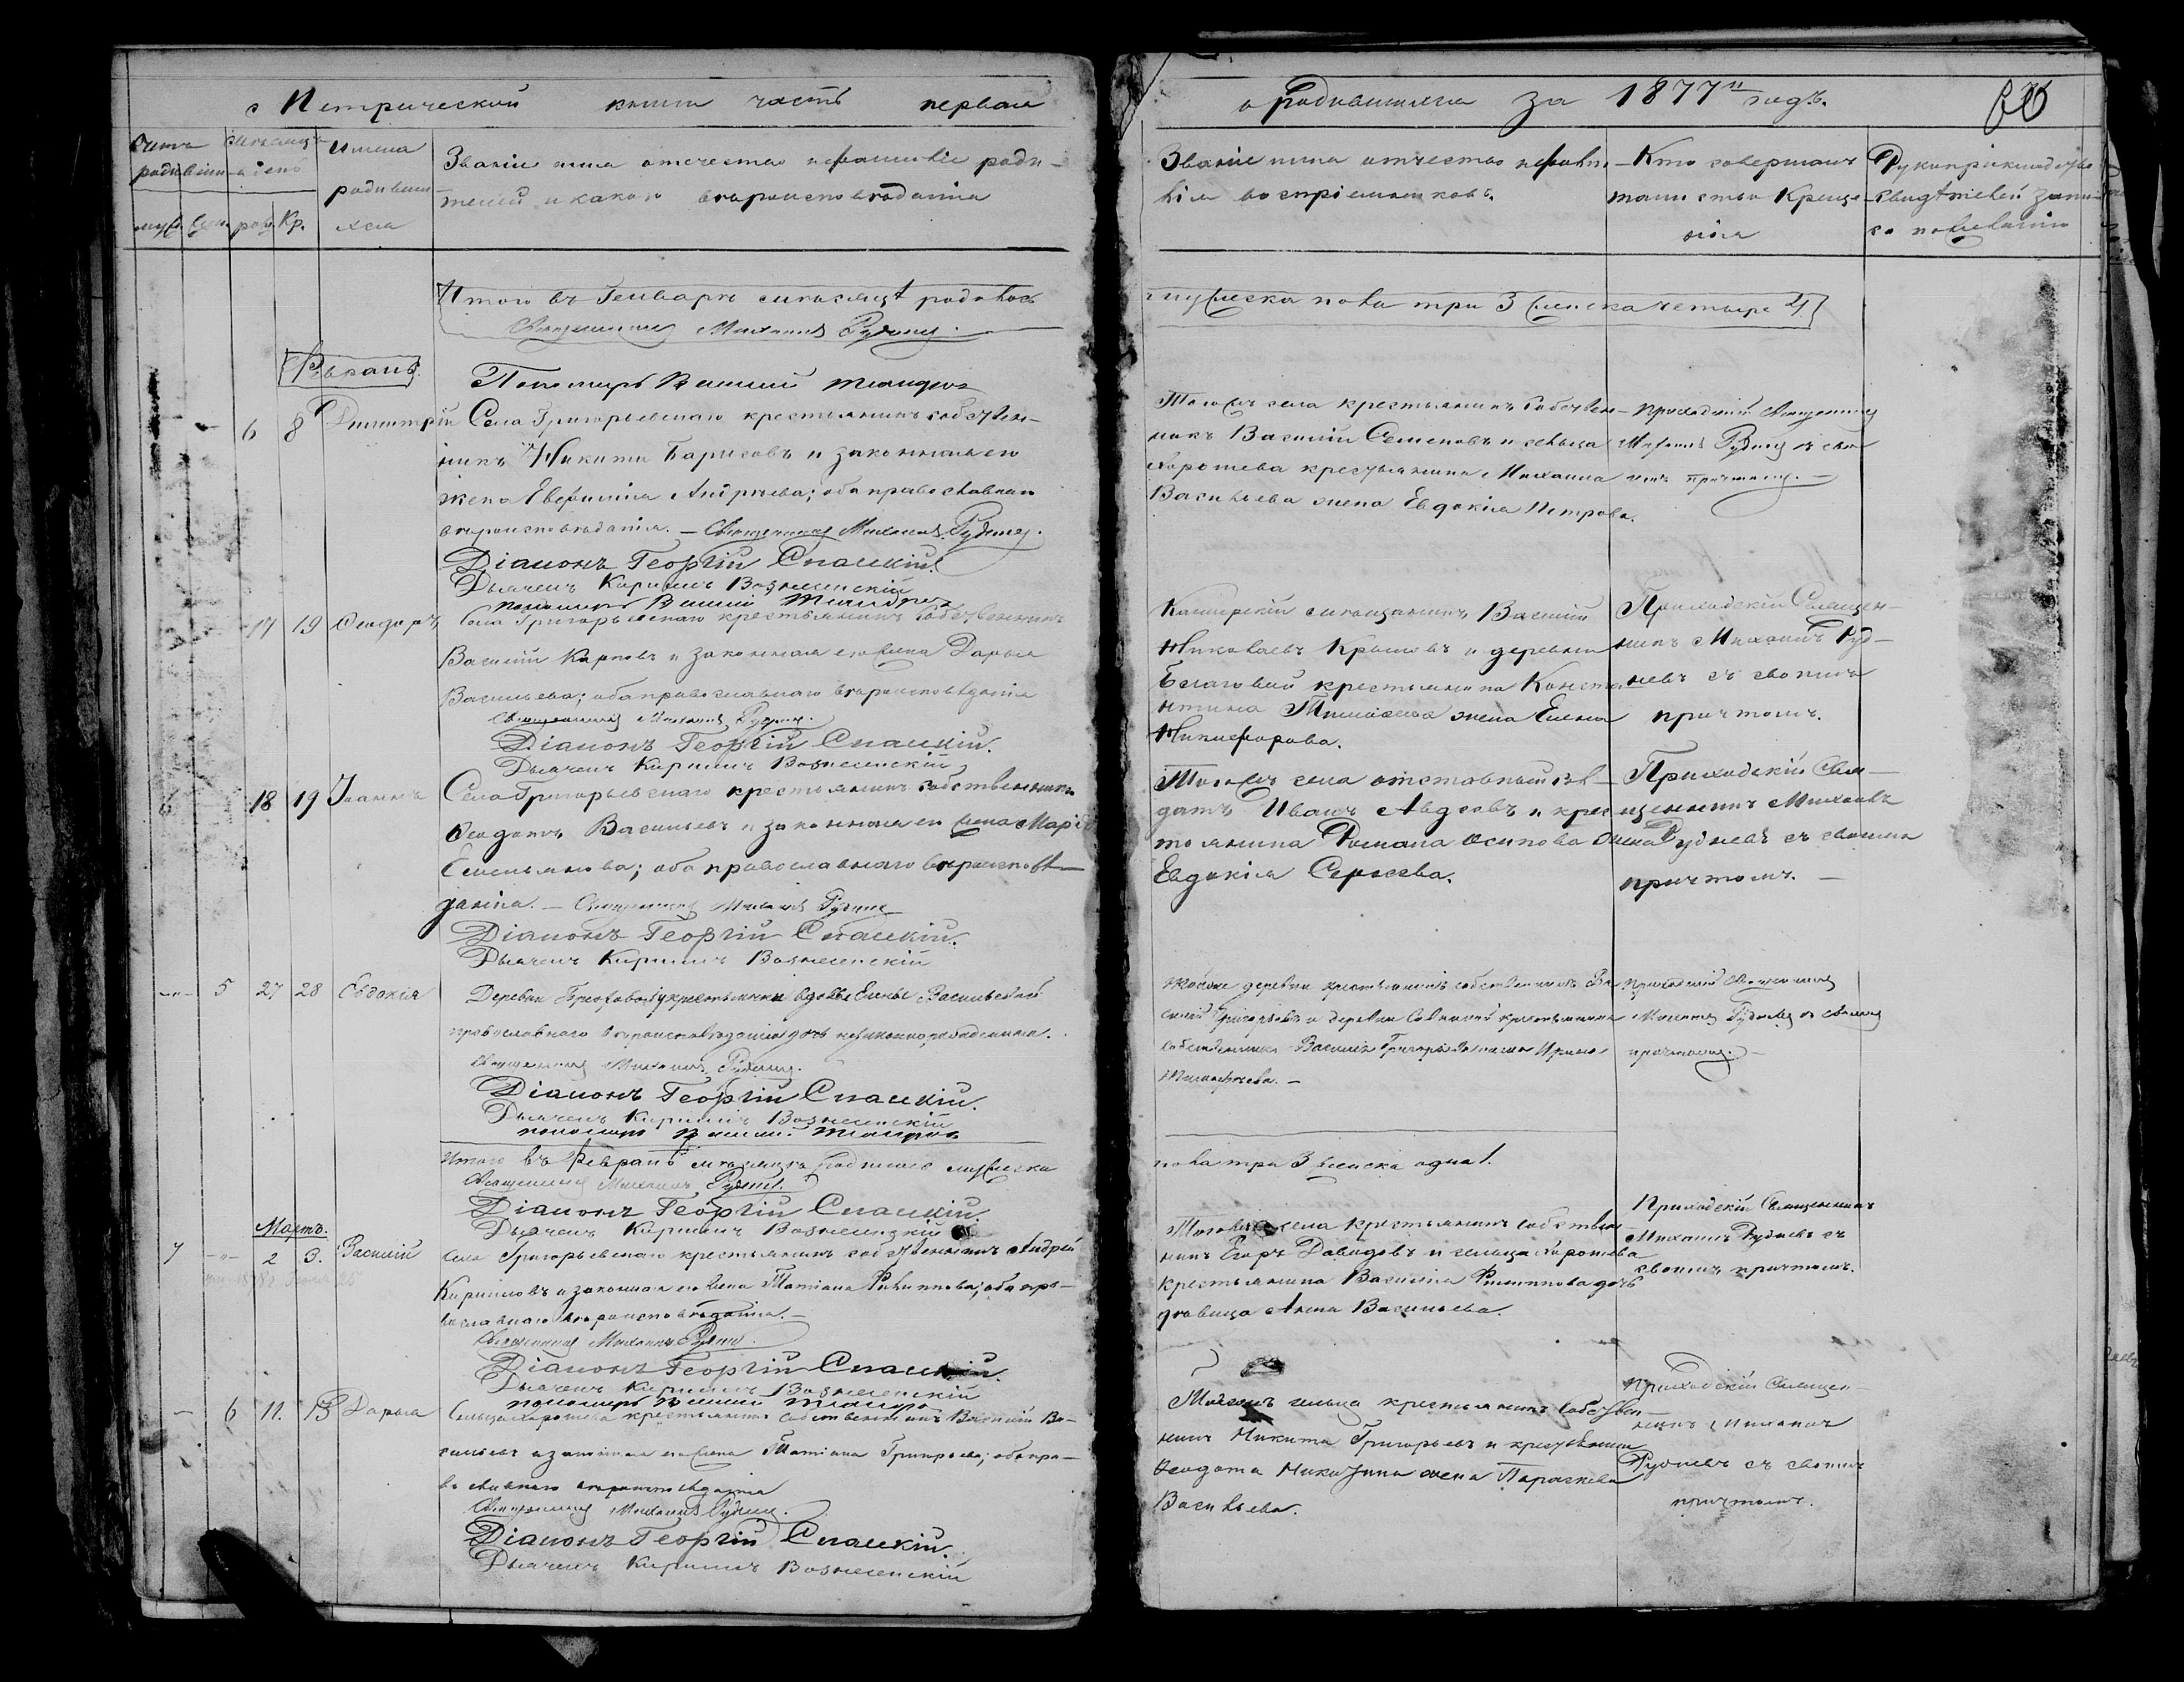 Метрической книги часть первая
о родившихся за 1877й годъ.
Счетъ родившихся
Мѣсяцъ и день
Имена родившихся
муж. жен. рож. Кр.
Званіе имя отчество и фамилія роди-
телей и какого вѣроисповѣданія
Званіе имя отчество и фами-
лія воспріемниковъ.
Кто совершалъ
таинство Креще-
нія
Рукоприкладство
свидѣтелей записи
по желанію
Итого въ Генварѣ мѣсяцѣ родилось
мужеска пола три 3 женска четыре 4
Священникъ Михаилъ Рудневъ.
Февраль.
Пономарь Василий
6 8 Димитрій
Села Григорьевскаго крестьянинъ собствен-
никъ Никита Борисовъ и законная его
жена Евфимія Андреева; оба православнаго
вѣроисповѣданія. — Священникъ Михаилъ Рудневъ.
Діаконъ Георгій Спасскій.
Дьячекъ Кириллъ Вознесенскій
Тогожъ села крестьянинъ собствен-
никъ Василій Семеновъ и сельца
Хорошева крестьянина Михаила
Васильева жена Евдокія Петрова.
Приходскій Священникъ
Михаилъ Рудневъ съ сво-
имъ причтомъ. —
Пономарь Василий
17 19 Ѳеодоръ
Села Григорьевскаго крестьянинъ собственникъ
Василій Карповъ и законная его жена Дарья
Васильева; оба православнаго вѣроисповѣданія
Священникъ Михаилъ Рудневъ.
Діаконъ Георгій Спасскій.
Дьячекъ Кириллъ Вознесенскій
Каширскій мѣщанинъ Василій
Николаевъ Крыловъ и деревни
крестьянина Конста-
нтина жена Елена
Никифорова.
Приходскій Священ-
никъ Михаилъ Руд-
невъ съ своимъ
причтомъ.
18 19 Іоаннъ
Села Григорьевскаго крестьянинъ собственникъ
Ѳеодотъ Васильевъ и законная его жена Марія
Емельянова; оба православнаго вѣроисповѣ-
данія. — Священникъ Михаилъ Рудневъ
Діаконъ Георгій Спасскій.
Дьячекъ Кириллъ Вознесенскій
Тогожъ села отставный сол-
датъ Иванъ Авдеевъ и крес-
тьянина Романа Осипова жена
Евдокія Сергеева.
Приходскій Свя-
щенникъ Михаилъ
Рудневъ съ своимъ
причтомъ. —
5 27 28 Евдокія
Деревни крестьянки вдовы Елены Васильевой
православнаго вѣроисповѣданія дочь незаконнорожденная.
Священникъ Михаилъ Рудневъ.
Діаконъ Георгій Спасскій.
Дьячекъ Кириллъ Вознесенскій
пономарь Василий
Тойже деревни крестьянинъ собственникъ Ва-
силій Григорьевъ и деревни крестьянина
собственника Василія Григорьева жена Ирина
Тимофѣева. —
Приходскій Священникъ
Михаилъ Рудневъ съ своимъ
причтомъ. —
Итого въ Февралѣ мѣсяцѣ родилось мужеска
пола три 3 женска одна 1.
Священникъ Михаилъ Рудневъ.
Діаконъ Георгій Спасскій.
Дьячекъ Кириллъ Вознесенскій
Мартъ.
7 2 3. Василій
Села Григорьевскаго крестьянинъ собственникъ Андрей
Кирилловъ и законная его жена Татіана Филиппова; оба пра-
вославнаго вѣроисповѣданія. —
Священникъ Михаилъ Рудневъ.
Діаконъ Георгій Спасскій.
Дьячекъ Кириллъ Вознесенскій
пономарь Василий
Тогожъ села крестьянинъ собствен-
никъ Егоръ Давидовъ и сельца Хорошева
крестьянина Василія Филиппова дочь
дѣвица Анна Васильева.
Приходскій Священникъ
Михаилъ Рудневъ съ
своимъ причтомъ.
6 11. 13 Дарья
Сельца Хорошева крестьянинъ собственникъ Василій Ва-
сильевъ и законная его жена Татіана Григорьева; оба пра-
вославнаго вѣроисповѣданія
Священникъ Михаилъ Рудневъ.
Діаконъ Георгій Спасскій.
Дьячекъ Кириллъ Вознесенскій
Тогожъ сельца крестьянинъ собствен-
никъ Никита Григорьевъ и крестьянина
Ѳеодота Никитина жена Параскева
Васильева.
Приходскій Священ-
никъ Михаилъ
Рудневъ съ своимъ
причтомъ.